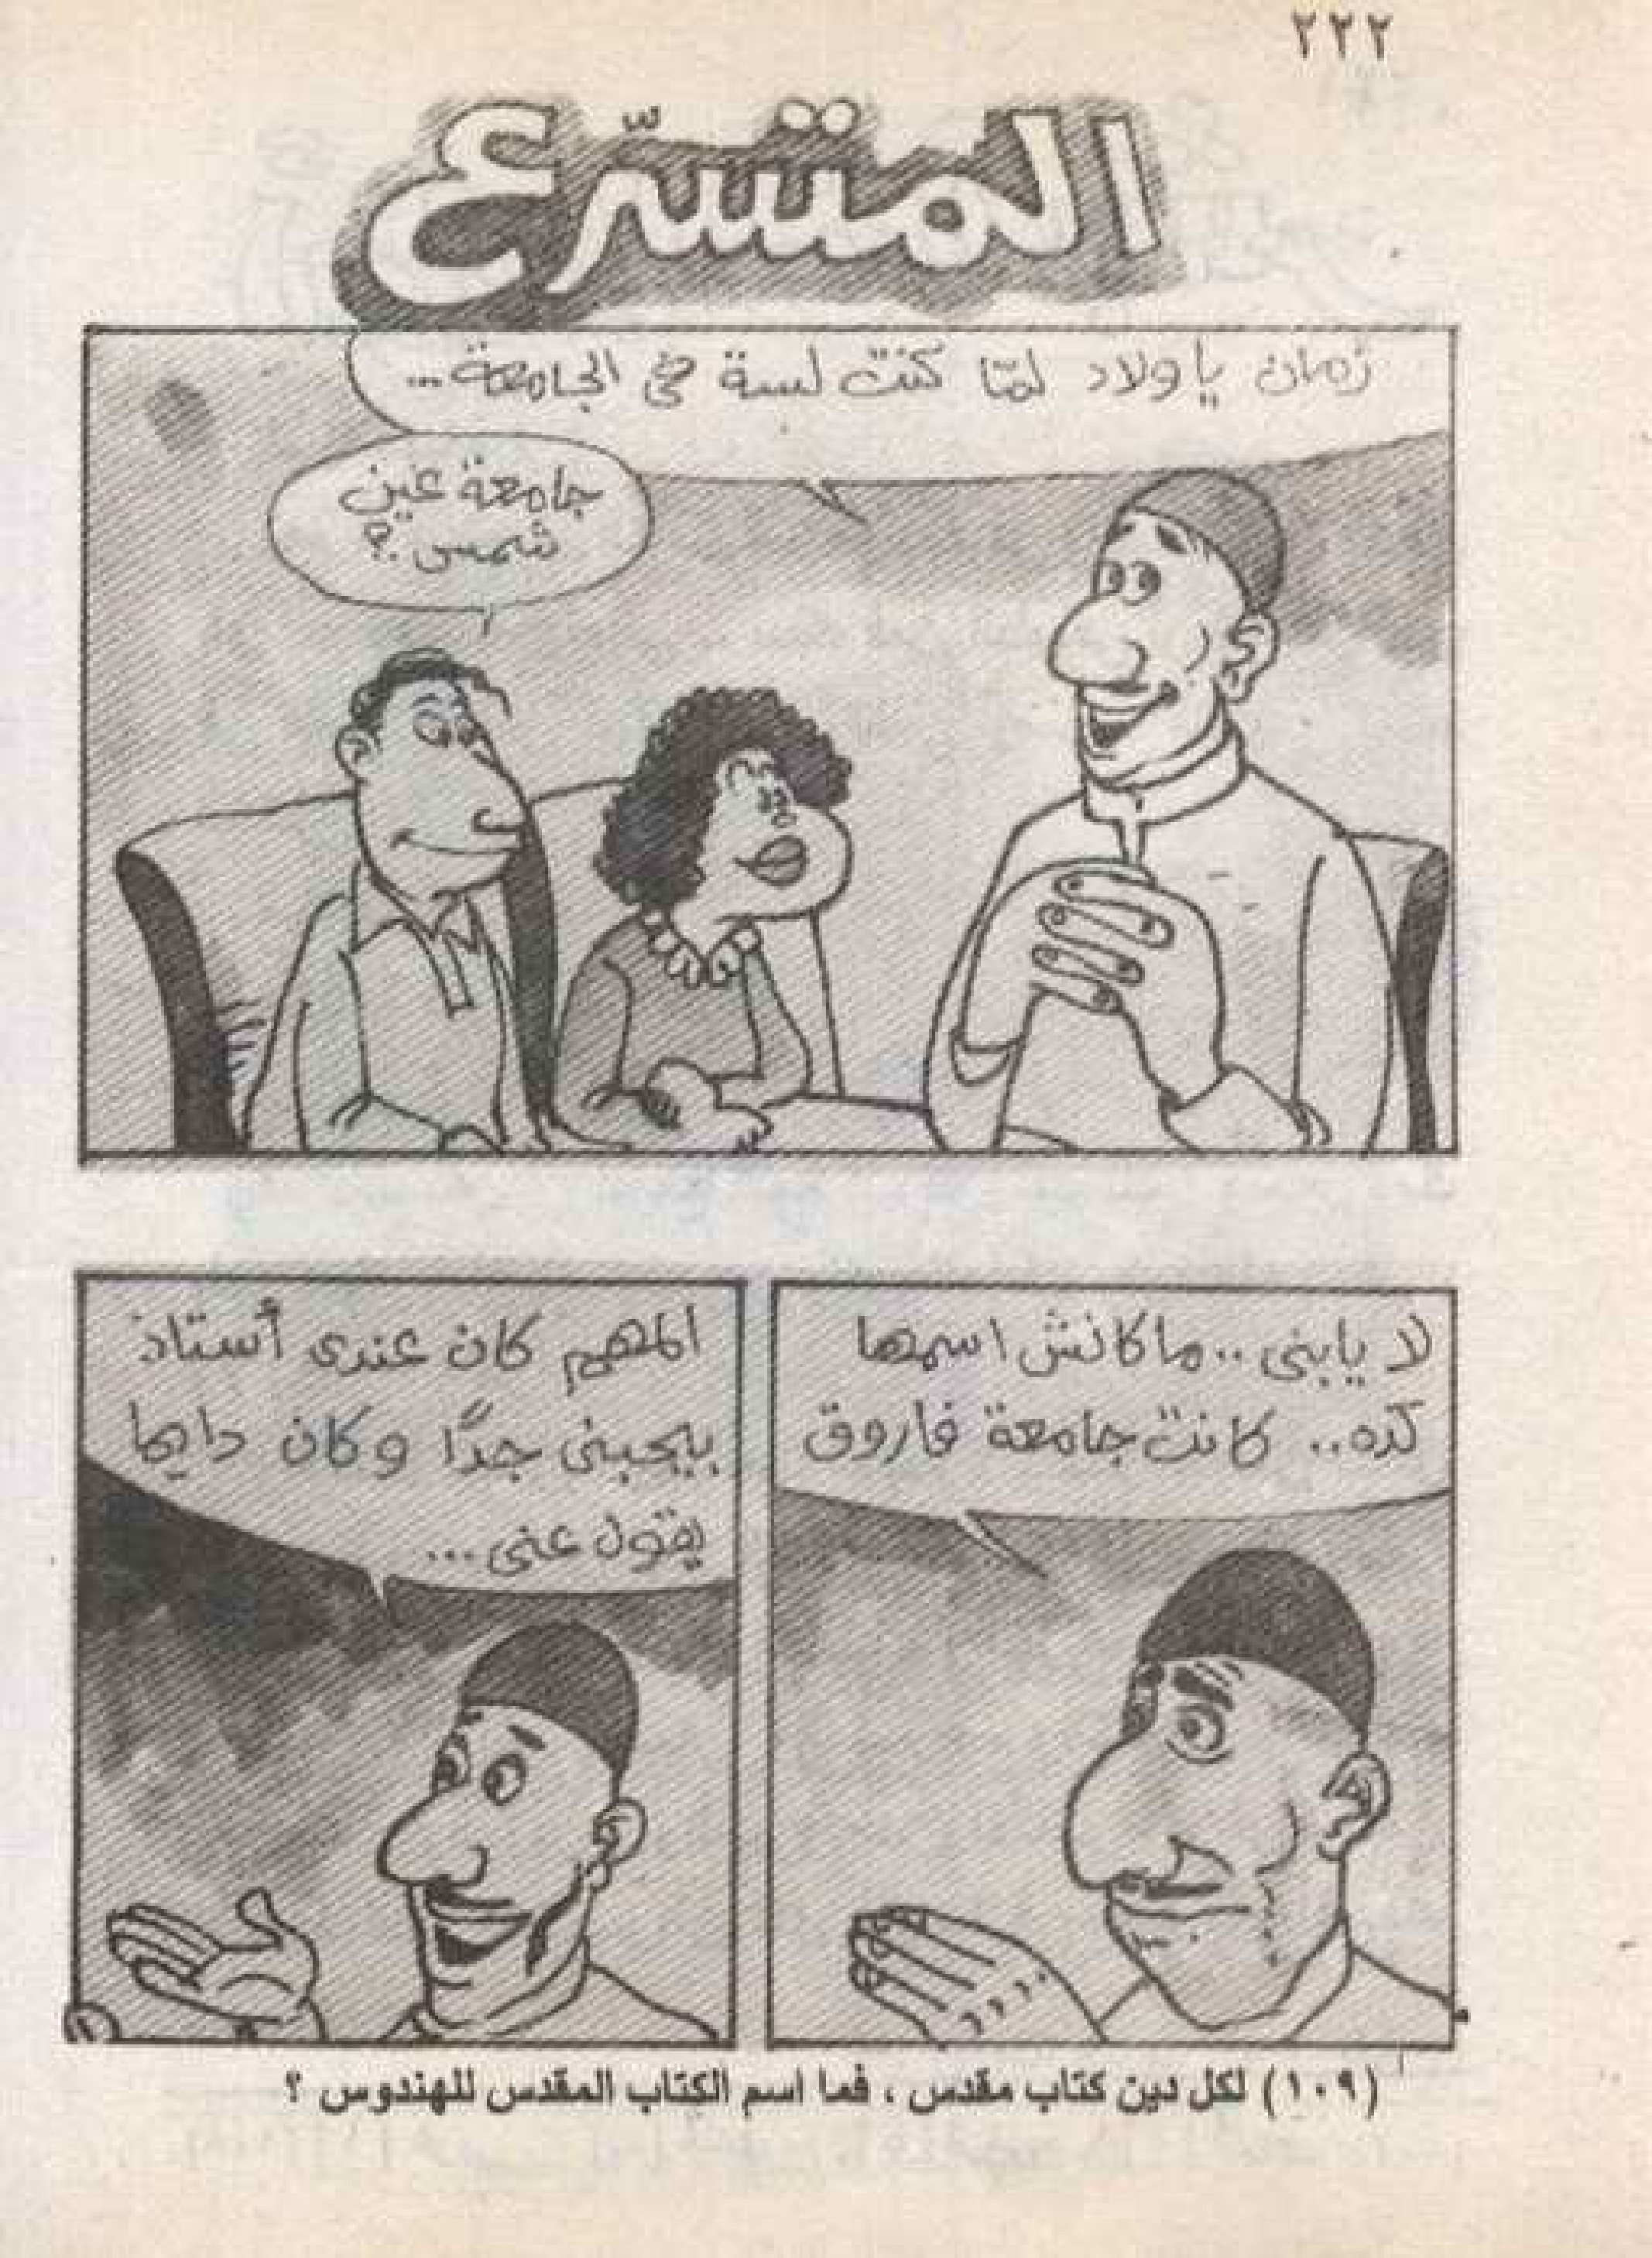 ٢٢٢
المتسرّع
زمان يا ولاد لمّا كنت لسة في الجامعة...
جامعة عين
شمس؟
لا يابنى.. ماكانش اسمها
كده.. كانت جامعة فاروق
المهم كان عندى أستاذ
بيحبنى جدًا وكان دايما
يقول عنى...
(١٠٩) لكل دين كتاب مقدس ، فما اسم الكتاب المقدس للهندوس ؟